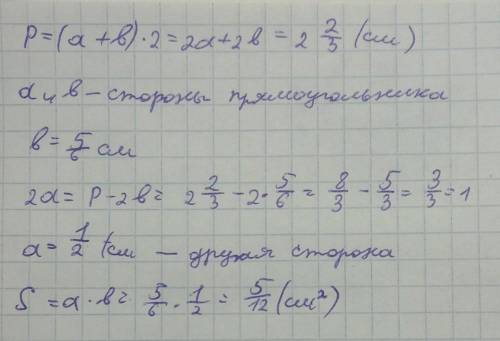 P=(a+b)·2=2a+2b=2 2/3 (см)
a и b – стороны прямоугольника
b=5/6 см
2a= P-2b= 2 2/3 -2·5/6= 8/3 - 5/3= 3/3=1
a= 1/2 см – другая сторона
S=a·b= 5/6·1/2= 5/12 (см²)